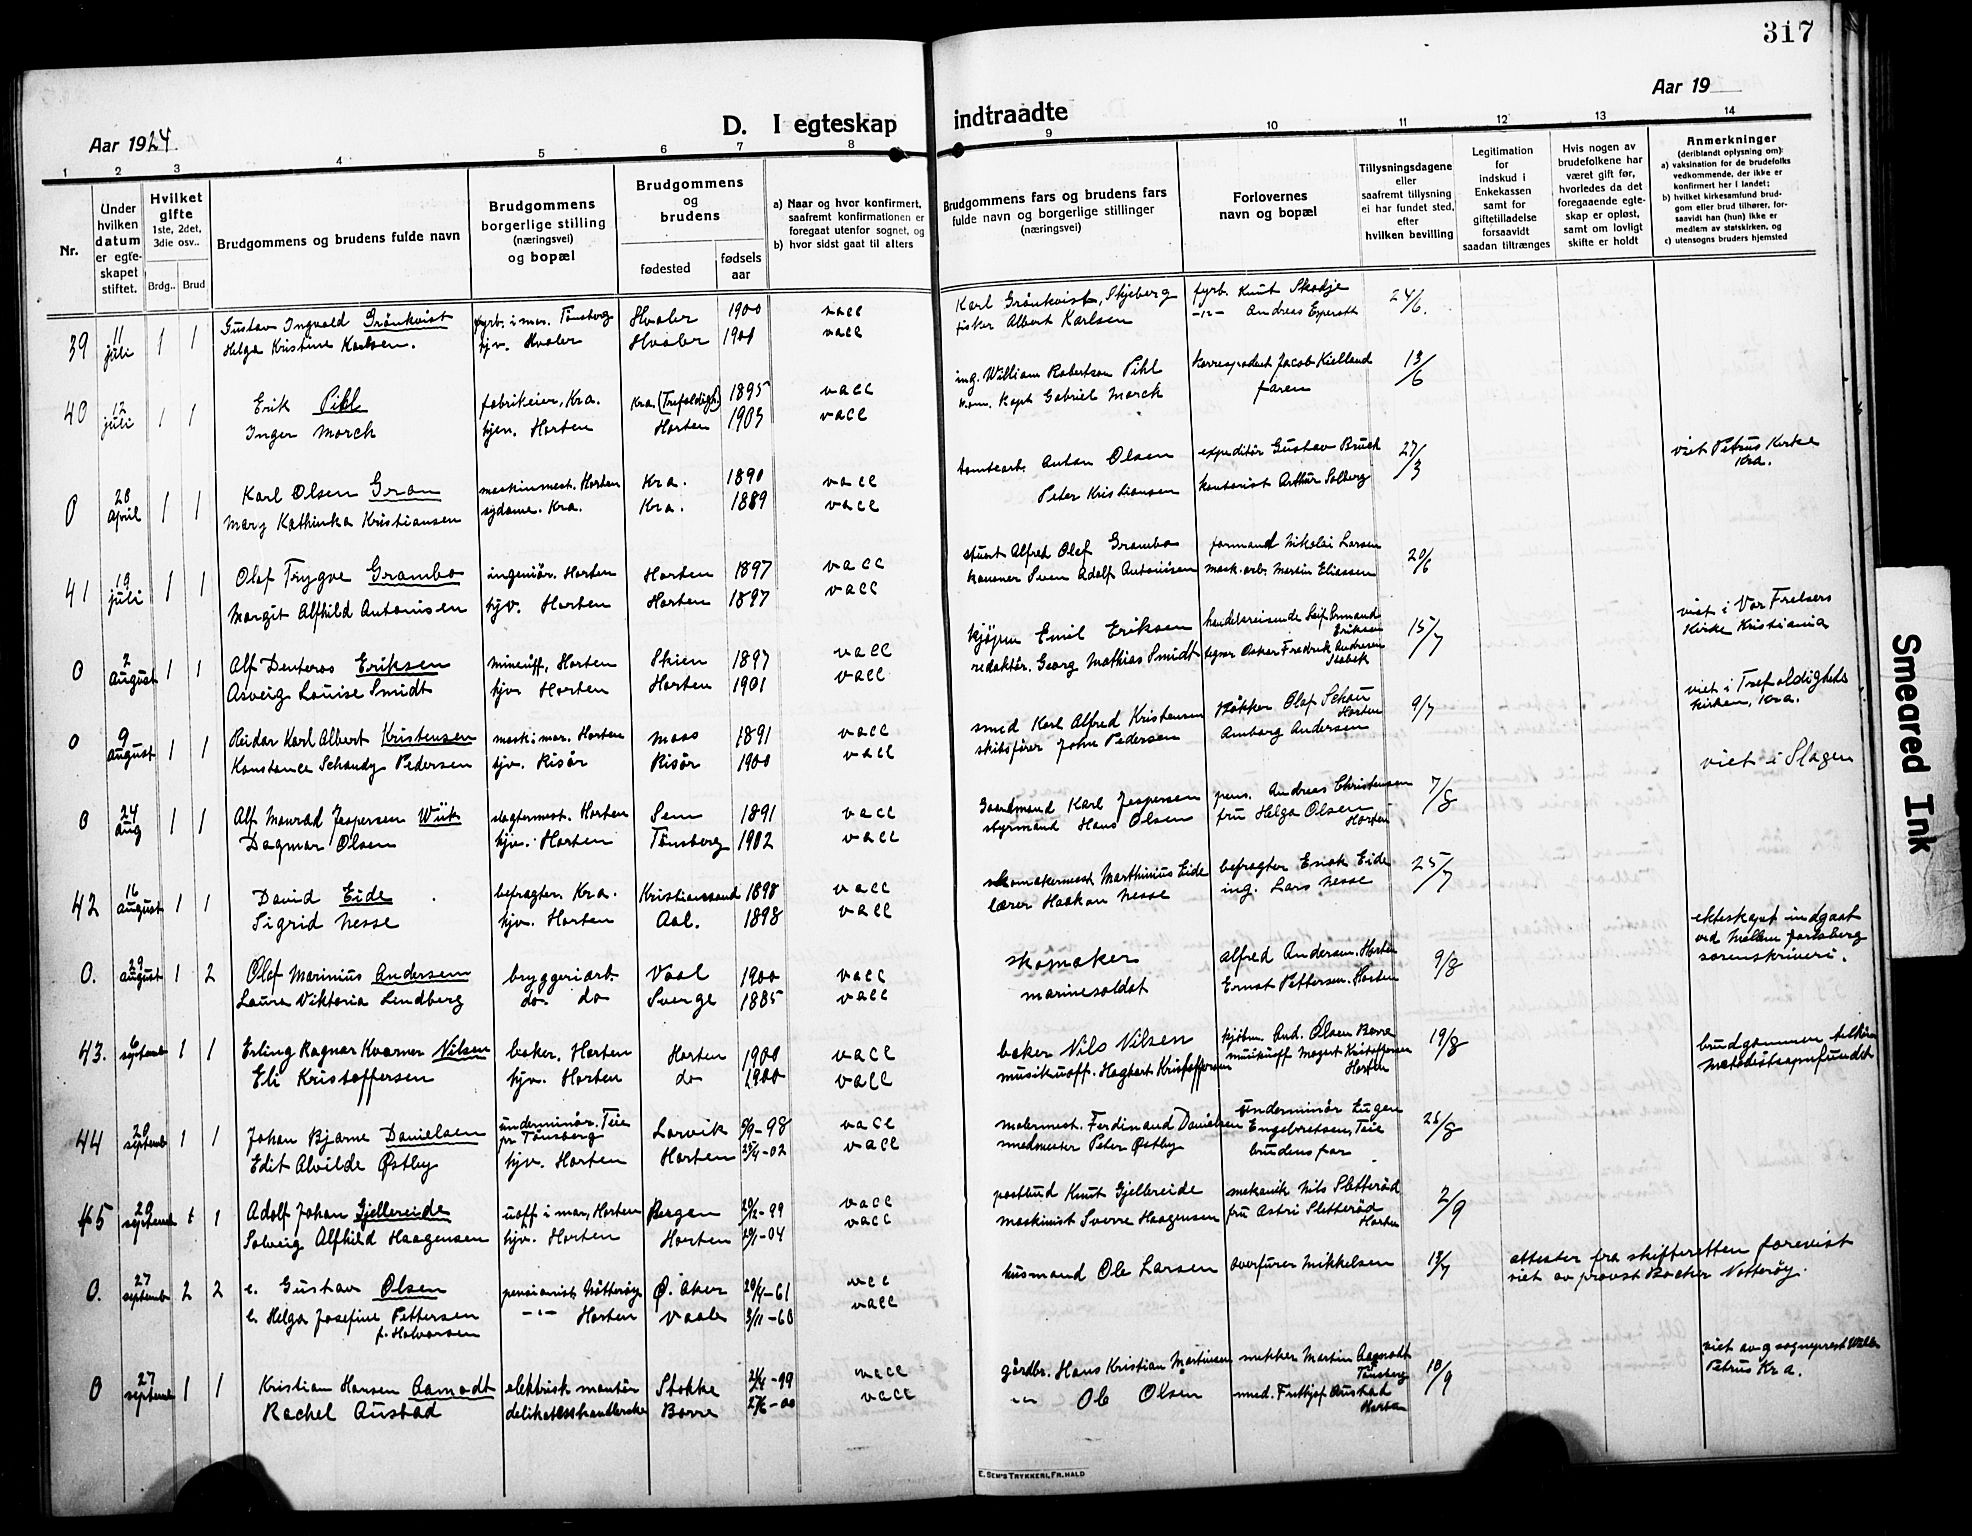 317
Aar 1924.
D. I egteskap indtraadte
Aar 19
1 2 3 4 5 6 7 8 9 10 11 12 13 14
Nr.
Under hvilken datum er egteskapet stiftet.
Hvilket gifte 1ste, 2det, 3die osv..
Brdg.. Brud
Brudgommens og brudens fulde navn
Brudgommens borgerlige stilling (næringsvei) og bopæl
Brudgommens og brudens
fødested
fødsels aar
a) Naar og hvor konfirmert, saafremt konfirmationen er foregaat utenfor sognet, og
b) hvor sidst gaat til alters
Brudgommens fars og brudens fars fulde navn og borgerlige stillinger (næringsvei)
Forlovernes navn og bopæl
Tillysningsdagene eller saafremt tillysning ei har fundet sted, efter hvilken bevilling
Legitimation for indskud i Enkekassen samt for giftetilladelse forsaavidt saadan tiltrænges
Hvis nogen av brudefolkene har været gift før, hvorledes da det foregaaende egteskap er opløst, samt om lovligt skifte er holdt
Anmerkninger (deriblandt oplysning om):
a) vaksination for de brudefolks vedkommende, der ikke er konfirmert her i landet;
b) hvilket kirkesamfund brudgom eller brud tilhører, forsaavidt han (hun) ikke er medlem av statskirken, og
c) utensogns bruders hjemsted
39 11 juli 1 1 Gustav Ingvald Grönkvist fyrb. i mar. Tønsberg Hvaler 1900 vacc Karl Grönkvist, Skjeberg fyrb. Knut Skodje 24/6.
Helga Kristine Karlsen. hjv. Hvaler Hvaler 1901 vacc fisker Albert Karlsen -"- Andreas
40 12 juli 1 1 Erik Pihl fabrikeier, Kra. Kra. (Trefoldigh.) 1895 vacc ing. William Robertson Pihl Korrespondent Jacob Kielland 13/6
Inger Morch hjem. Horten Horten 1905 vacc kom. kapt. Gabriel Morck faren
0 28 april 1 1 Karl Olsen Gran maskinmest. Horten Kra. 1890 vacc tomtearb. Anton Olsen expeditør Gustav Bruck 27/3 viet Petrus Kirke Kra.
Mary Kathinka Kristiansen sydame. Kra. Kra. 1889 vacc Peter Kristiansen kontorist Arthur Solberg
41 19 juli 1 1 Olaf Trygve Grambo ingeniør. Horten Horten 1897 vacc stuert Alfred Olaf Grambo formand Nikolai Larsen 20/6
Margit Alfhild Antonisen hjv. Horten Horten 1897 vacc kanoner Sven Adolf Antonisen mask.arb. Martin Eliassen
0 2 august 1 1 Alf Denteros Eriksen mineuff. Horten Skien 1897 vacc kjøpm Emil Eriksen handelsreisende Leif Ermand Eriksen 15/7 viet i Vor Frelsers Kirke Kristiania
Asveig Louise Smidt hjv Horten Horten 1901 vacc redaktør. Georg Mathias Smidt Oskar Fredrik Andresen
0 9 august 1 1 Reidar Karl Albert Kristensen mask i mar. Horten Moss 1891 vacc smed Karl Alfred Kristensen Bøkker Olaf Schou Horten 9/7 viet i Trefoldigheds kirken, Kra.
Konstance Schandy Pedersen hjv. Risör Risör 1900 vacc skibsfører John Pedersen Amborg Andersen
0 24 aug 1 1 Alf Monrad Jespersen Wiik slagtermest. Horten Sem 1891 vacc Gaardmand Karl Jespersen pens. Andreas Christensen 7/8 viet i Slagen
Dagmar Olsen hjv. Horten Tönsberg 1902 vacc styrmand Hans Olsen fru Helga Olsen Horten
42 16 august 1 1 David Eide befragter, Kra. Kristianssand 1898 vacc skomakermest Marthinius Eide befragter Enok Eide 25/7
Sigrid Nesse hjv. Horten Aal. 1898 vacc lærer Haakon Nesse ing. Lars Nesse
0. 29 august 1 2 Olaf Marinius Andersen bryggeriarb. Vaal 1900 vacc skomaker Alfred Andersen. Horten 9/8 ekteskapet indgaat ved Mellem Jarlsberg sorenskriveri.
Laura Viktoria Lindberg do do Sverge 1885 vacc marinesoldat Ernst Pettersen. Horten
43. 6 septemb 1 1 Erling Ragnar Kvarner Nilsen baker. Horten Horten 1900 vacc baker Nils Nilsen kjøbm. And. Olsen Borre 19/8 brudgommen tilhörer metodistsamfundet
Eli Kristoffersen hjv. Horten do 1900 vacc musikuoff. Hagbart Kristoffersen musikuoff Kristoffersen Horten
44 20 septemb 1 1 Johan Bjarne Danielsen underminör. Teie pr Tønsberg Larvik 5/9-98 vacc malermest. Ferdinand Danielsen Underminör Eugen Engebretsen, Teie 26/8
Edit Alvilde Østby hjv. Horten Horten 25/4-02 vacc smedmester Peter Østby brudens far
45 20 septemb 1 1 Adolf Johan Gjellereide uoff i mar, Horten Bergen 20/12-99 vacc postbud Knut Gjellereide mekanik Nils Sletteröd 2/9
Solveig Alfhild Haagensen hjv. Horten Horten 20/1-04 vacc maskinist Sverre Haagensen fru Astri Sletteröd Horten
0. 27 septemb 2 2 e. Gustav Olsen pensionist Nötteröy Ø. Aker 20/4-61 vacc husmand Ole Larsen overfurer Mikkelsen 13/7 attester fra skifteretten forevist viet av provst Bacher Nötteröy.
e. Helga Josefine Pettersen f. Halvorsen -"- Horten Vaale 3/11-60 vacc
0 27 septemb 1 1 Kristian Hansen Aamodt elektrisk montör Stokke 21/4-99 vacc gårdbr. Hans Kristian Martinsen snekker Martin Aamodt Tönsberg 10/9 viet av sogneprest Petrus Kra.
Rachel Austad delikatesshandlerske Borre 27/6-00 vacc -"- Ole Olsen smed. Fridtjof Austad Horten
E. SEM'S TRYKKERI, FR.HALD
Smeared Ink